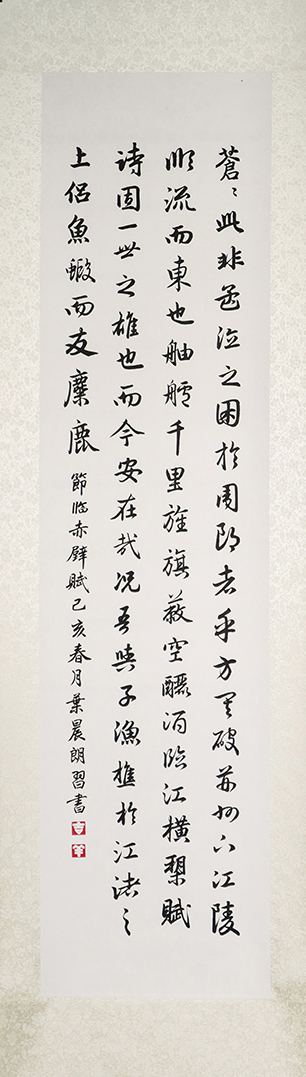 蒼〻此非孟德之困於周郎者乎方其破荊州下江陵
順流而東也舳艫千里旌旗蔽空釃酒臨江橫槊賦
詩固一世之雄也而今安在哉況吾與子漁樵於江渚之
上侶魚蝦而友麋鹿
節臨赤壁賦己亥春月葉晨朗習書